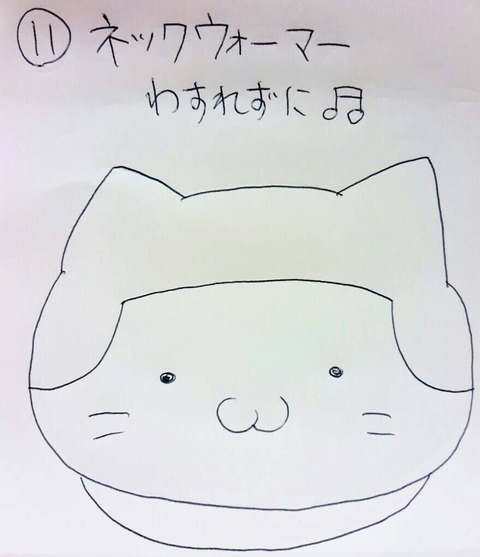 ⑪ ネックウォーマー
わすれずに♫